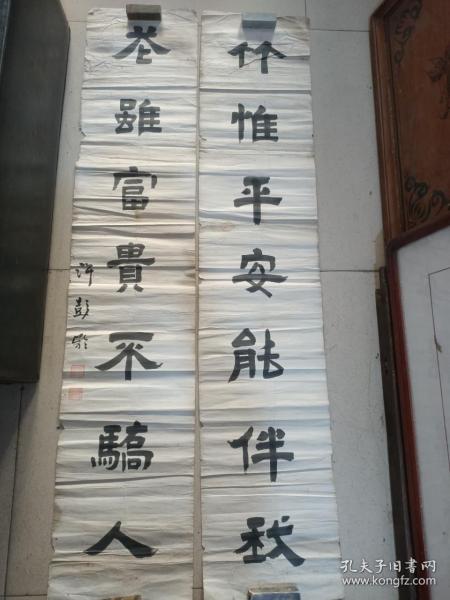 竹惟平安能伴我
花雖富貴不驕人
許彭齡
孔夫子旧书网
www.kongfz.com